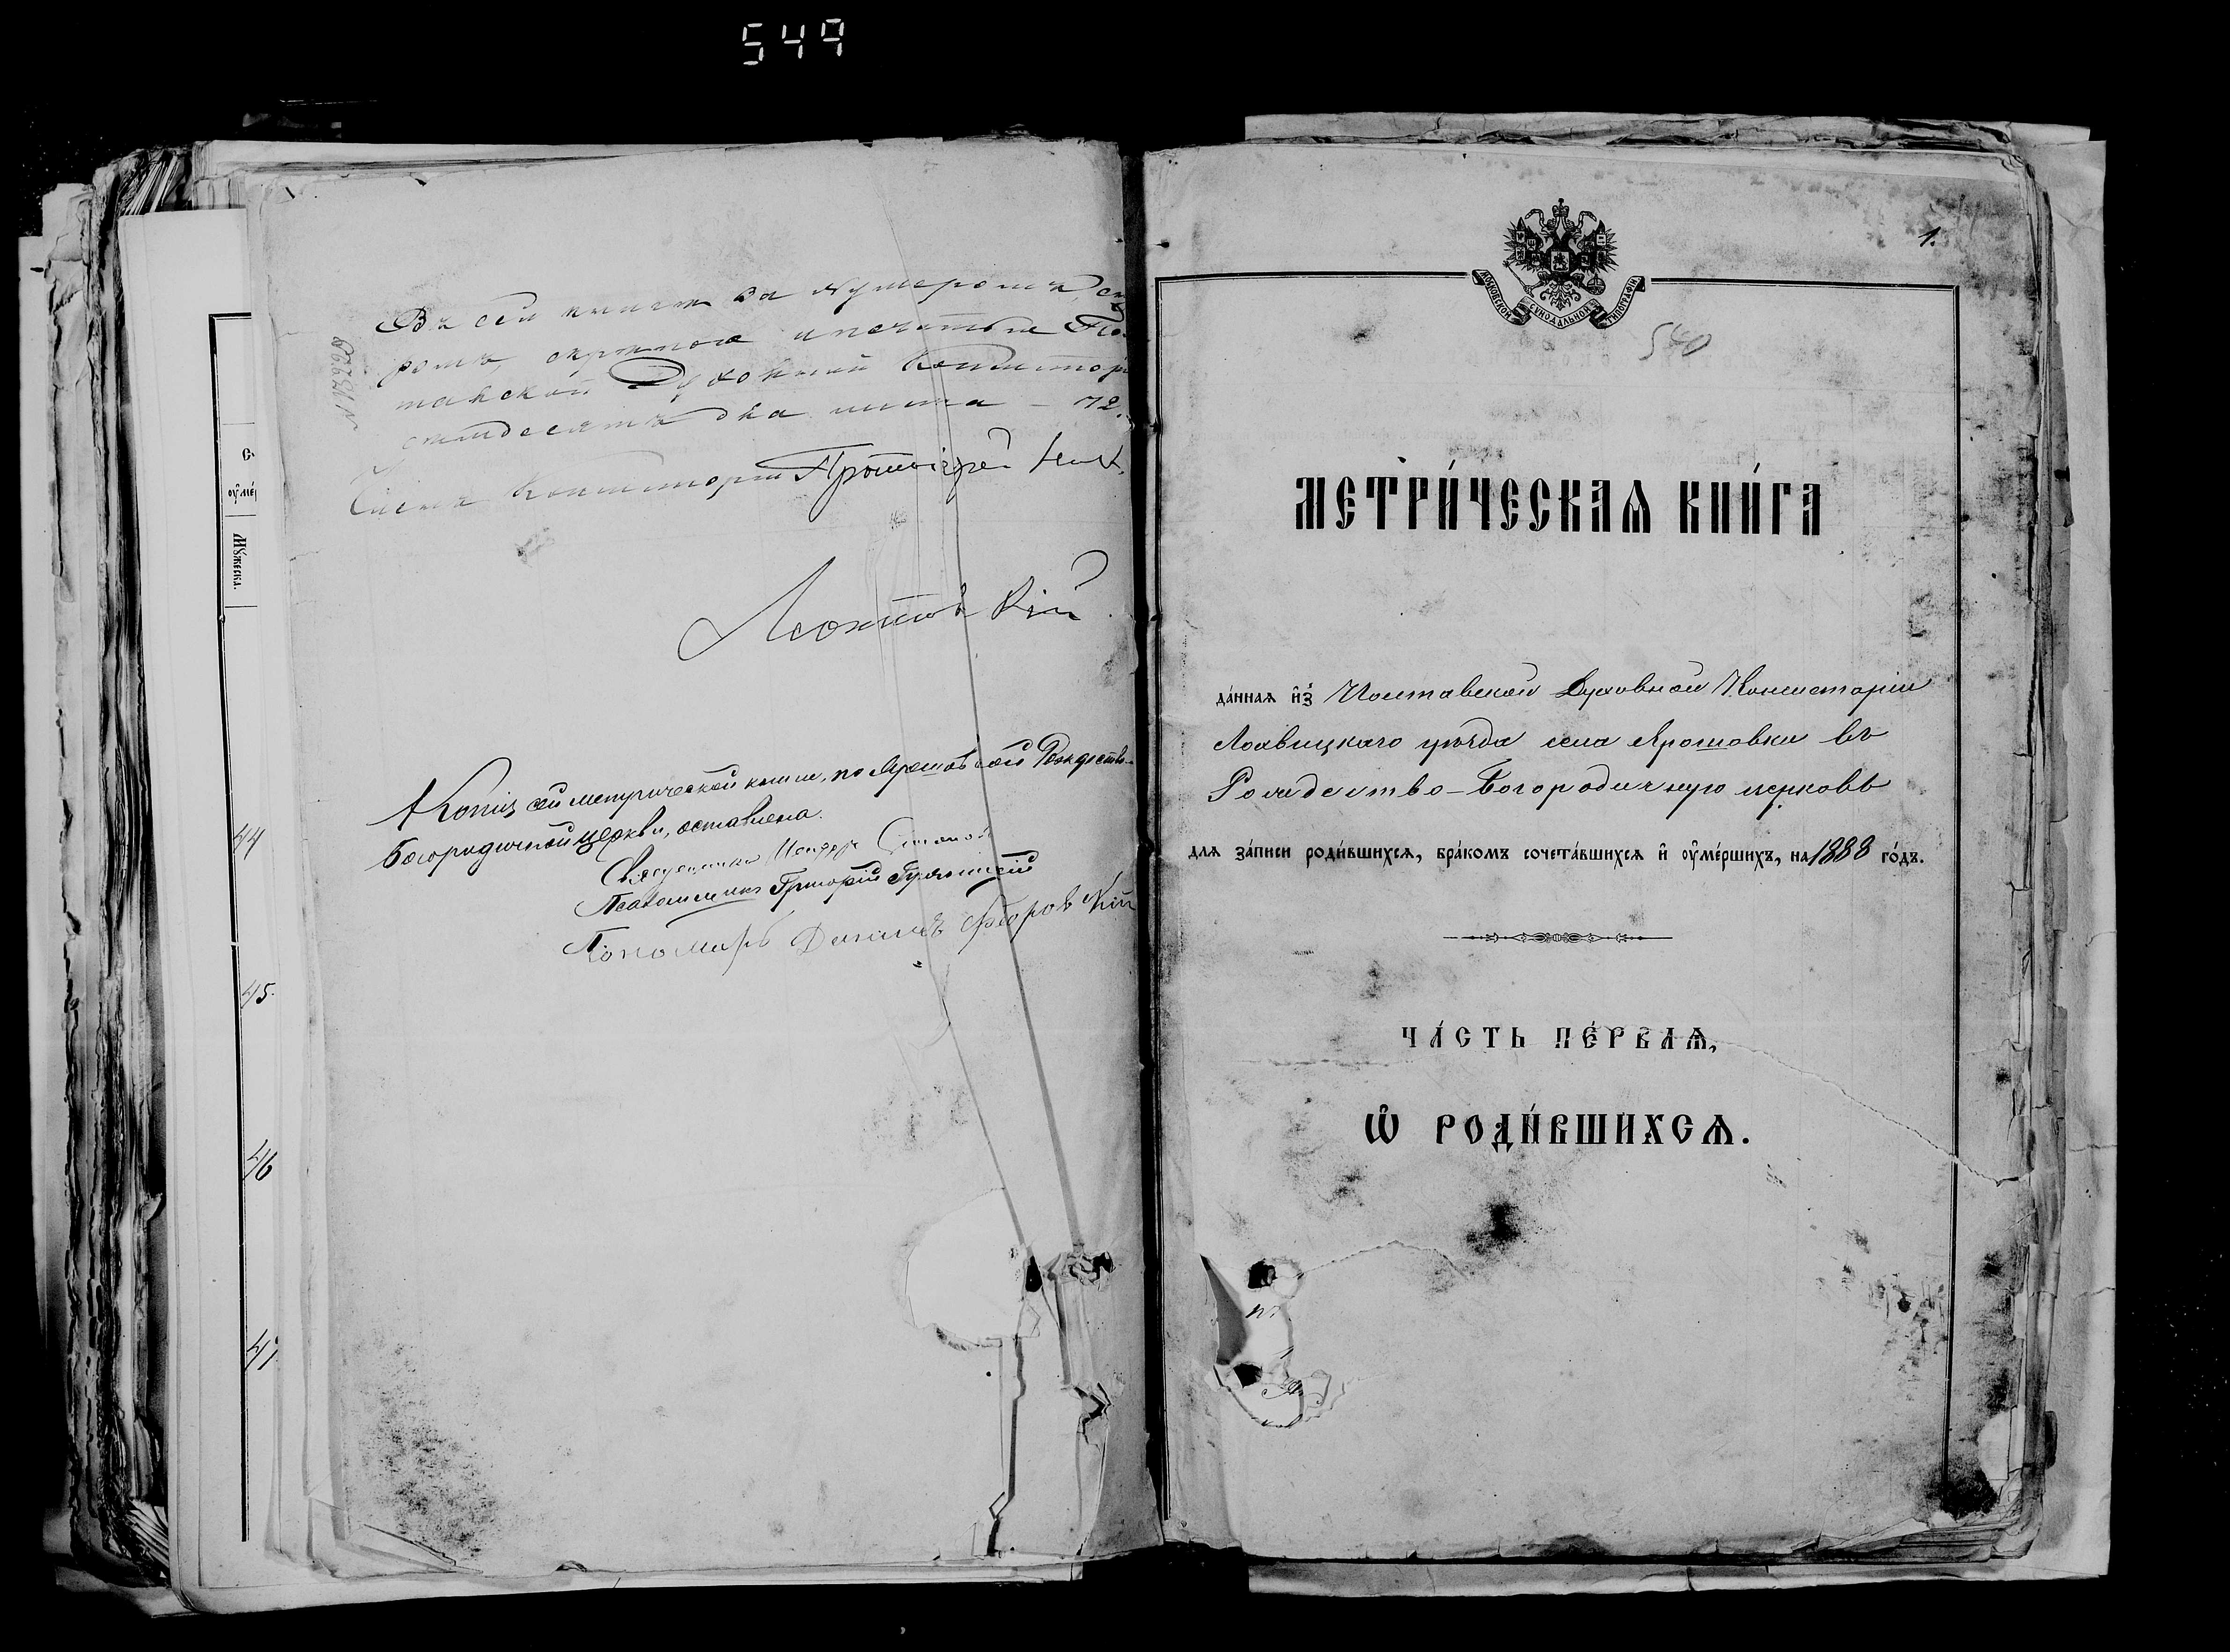 549
Въ сей книгѣ за нумеромъ, шну
ромъ, скрѣпою и печатью Пол
тавской Духовной Консисторіи
семдесятъ два листа – 72.
Членъ Консисторіи Протоіерей
Леонтовскій
Копія сей метрической книги, по Ярошовской Рождество-
Богородичной церкви, оставлена.
Священникъ
Псаломщикъ Григорій
Пономарь Даніилъ
Мꙋжеска.
44
45.
46
47
1.
МОСКОВСКОЙ СѴНОДАЛЬНОЙ ТИПОГРАФІИ
540
МЕТРИ́ЧЕСКАѦ КНИ́ГА
да́ннаѧ и҆з̾ Полтавской Духовной Консисторіи
Лохвицкаго уѣзда села Ярошовки въ
Рождество-Богородичную церковь
для за́писи роди́вшихсѧ, бра́комъ сочета́вшихсѧ и҆ ᲂу҆ме́ршихъ, на 1888 го́дъ.
ЧА́СТЬ ПЕ́РВАѦ,
Ѡ҆ РОДИ́ВШИХСѦ.